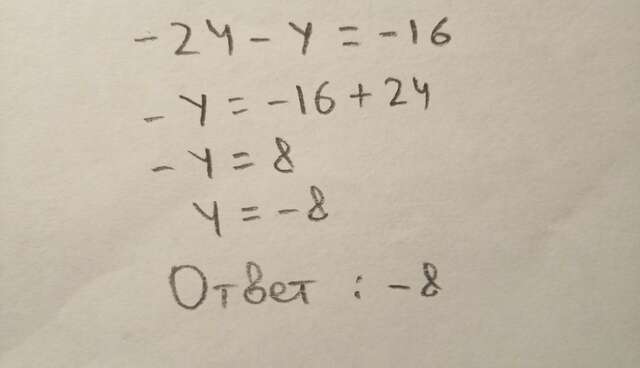 -24 - y = -16
- y = -16 + 24
- y = 8
y = -8
Ответ : -8